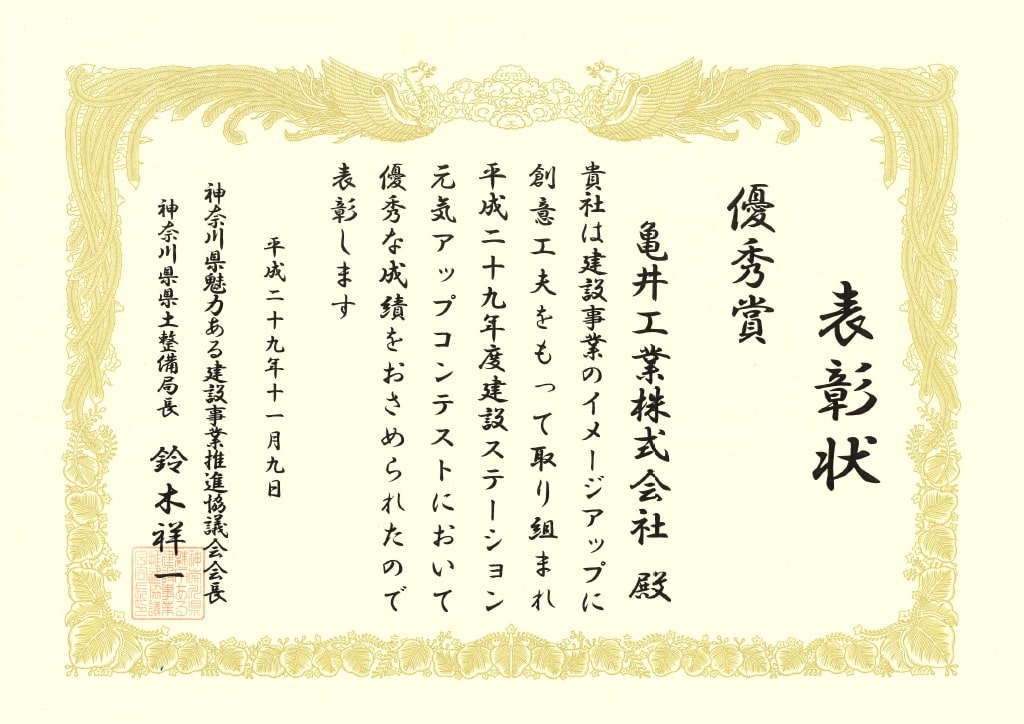 表彰状
優秀賞
亀井工業株式会社 殿
貴社は建設事業のイメージアップに
創意工夫をもって取り組まれ
平成二十九年度建設ステーション
元気アップコンテストにおいて
優秀な成績をおさめられたので
表彰します
平成二十九年十一月九日
神奈川県魅力ある建設事業推進協議会会長
神奈川県県土整備局長 鈴木祥一